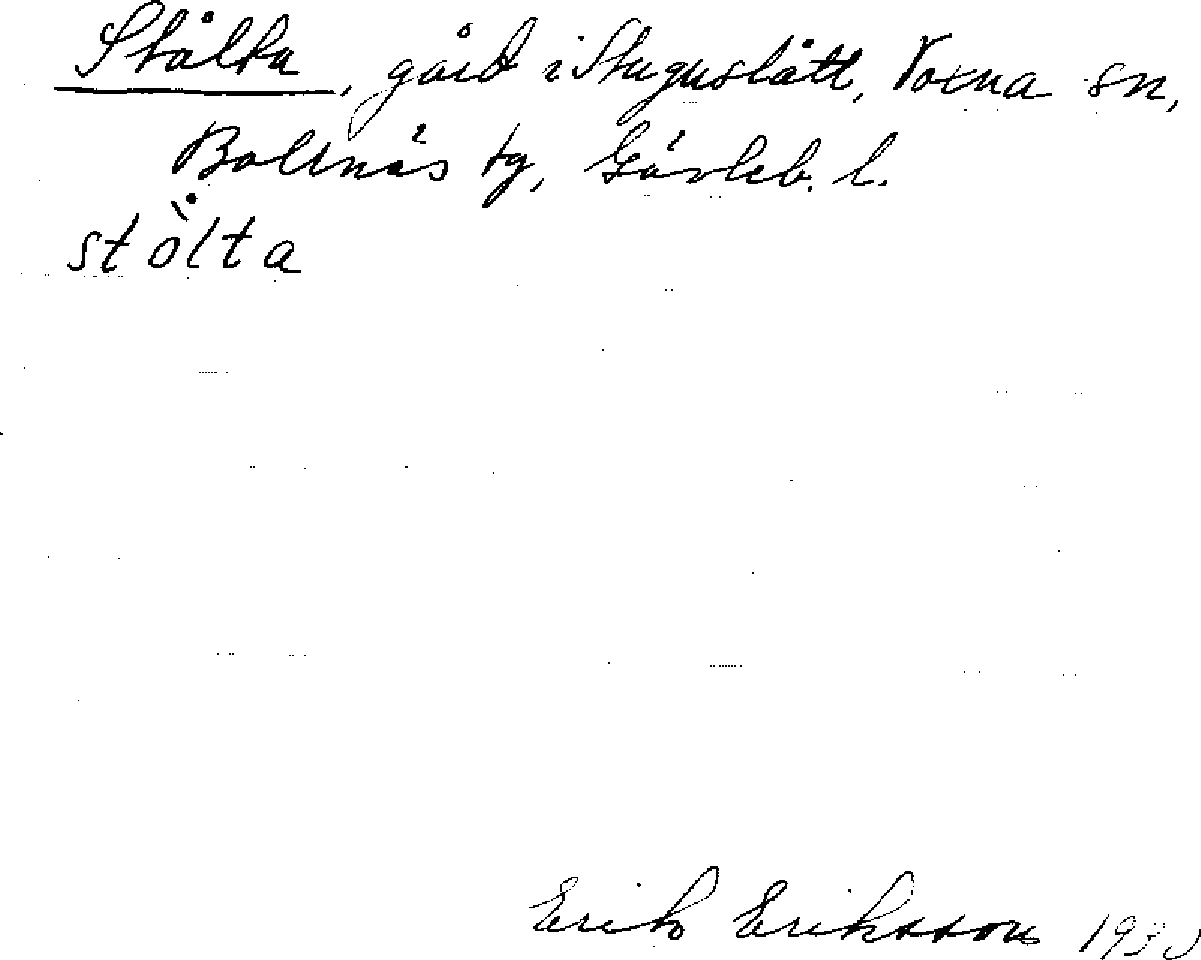 Stålta, gård i Stuguslått, Voxna sn,
Bollnäs tg, Gävleb. l.
stὸ̇lta
Erik Eriksson 1930